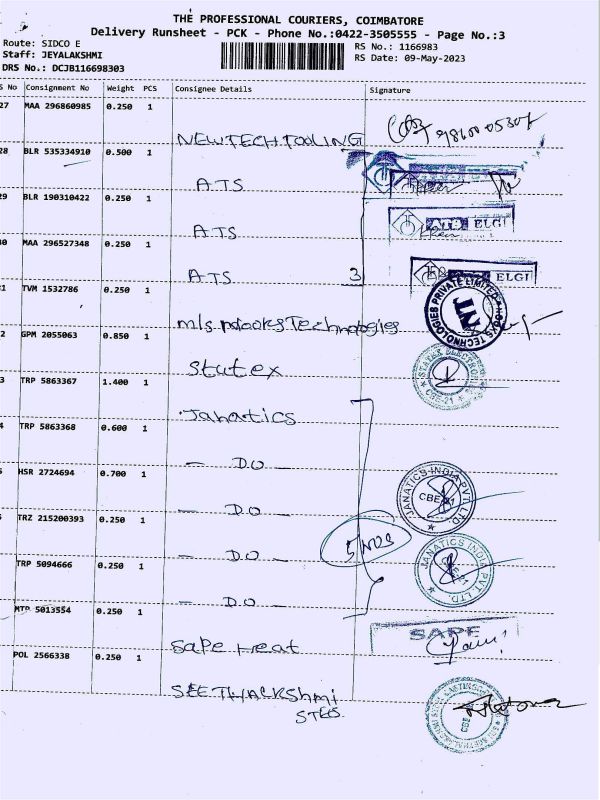 THE PROFESSIONAL COURIERS, COIMBATORE
Delivery Runsheet - PCK - Phone No.:0422-3505555 - Page No.:3
Route: SIDCO E
RS No.: 1166983
Staff: JEYALAKSHMI
RS Date: 09-May-2023
DRS No.: DCJB116698303
S No Consignment No Weight PCS Consignee Details Signature
27 MAA 296860985 0.250 1
NEWTECH TOOLING
28 BLR 535334910 0.500 1
ATS
29 BLR 190310422 0.250 1
ATS ELGI
30 MAA 296527348 0.250 1
ATS 3 ELGI
31 TVM 1532786 0.250 1
M/s. Technologies
2 GPM 2055063 0.850 1
Statex
3 TRP 5863367 1.400 1
Janatics
4 TRP 5863368 0.600 1
- DO -
HSR 2724694 0.700 1
- DO -
JANATICS INDIA PVT LTD
TRZ 215200393 0.250 1
- DO - 5 NOS
JANATICS INDIA PVT LTD
TRP 5094666 0.250 1
- DO -
MTP 5013554 0.250 1
Sape Heat SAPE
POL 2566338 0.250 1